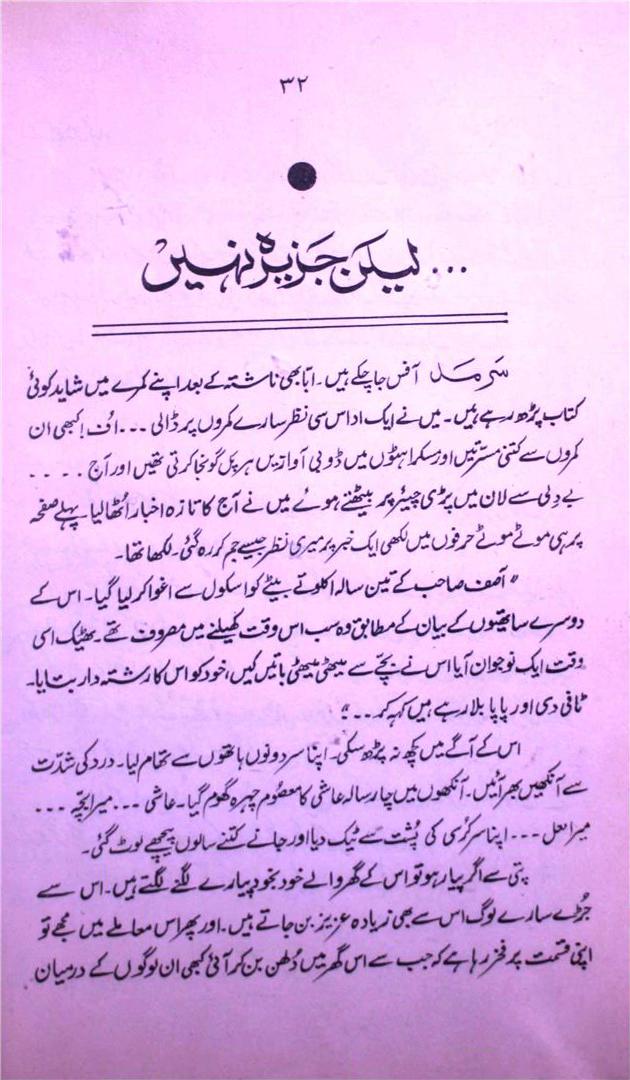 ۳۲
... لیکن جزیرہ نہیں
سَرمد آفس جا چکے ہیں۔ ابّا بھی ناشتہ کے بعد اپنے کمرے میں شاید کوئی
کتاب پڑھ رہے ہیں۔ میں نے ایک اداس سی نظر سارے کمروں پر ڈالی ۔۔۔ اُف! کبھی ان
کمروں سے کتنی مسرتیں اور مسکراہٹوں میں ڈوبی آوازیں ہر پل گونجا کرتی تھیں اور آج ۔۔۔۔
بے دِلی سے لان میں پڑی چیئر پر بیٹھتے ہوئے میں نے آج کا تازہ اخبار اُٹھا لیا۔ پہلے صفحہ
پر ہی موٹے موٹے حرفوں میں لکھی ایک خبر پر میری نظر جیسے جم کر رہ گئی۔ لکھا تھا۔
" آصف صاحب کے تین سالہ اکلوتے بیٹے کو اسکول سے اغوا کر لیا گیا۔ اس کے
دوسرے ساتھیوں کے بیان کے مطابق وہ سب اس وقت کھیلنے میں مصروف تھے۔ ٹھیک اسی
وقت ایک نوجوان آیا اس نے بچّے سے میٹھی میٹھی باتیں کیں، خود کو اس کا رشتہ دار بتایا۔
ٹافی دی اور پاپا بلا رہے ہیں کہہ کر ۔۔۔"
اس کے آگے میں کچھ نہ پڑھ سکی۔ اپنا سر دونوں ہاتھوں سے تھام لیا۔ درد کی شدّت
سے آنکھیں بھر آئیں۔ آنکھوں میں چار سالہ عاشی کا معصوم چہرہ گھوم گیا۔ عاشی ۔۔۔ میرا بچّہ ۔۔۔
میرا لعل ۔۔۔ اپنا سر کرسی کی پُشت سے ٹیک دیا اور جانے کتنے سالوں پیچھے لوٹ گئی۔
پتی سے اگر پیار ہو تو اس کے گھر والے خود بخود پیارے لگنے لگتے ہیں۔ اس سے
جُڑے سارے لوگ اس سے بھی زیادہ عزیز بن جاتے ہیں۔ اور پھر اس معاملے میں مجھے تو
اپنی قسمت پر فخر رہا ہے کہ جب سے اس گھر میں دُلھن بن کر آئی کبھی ان لوگوں کے درمیان